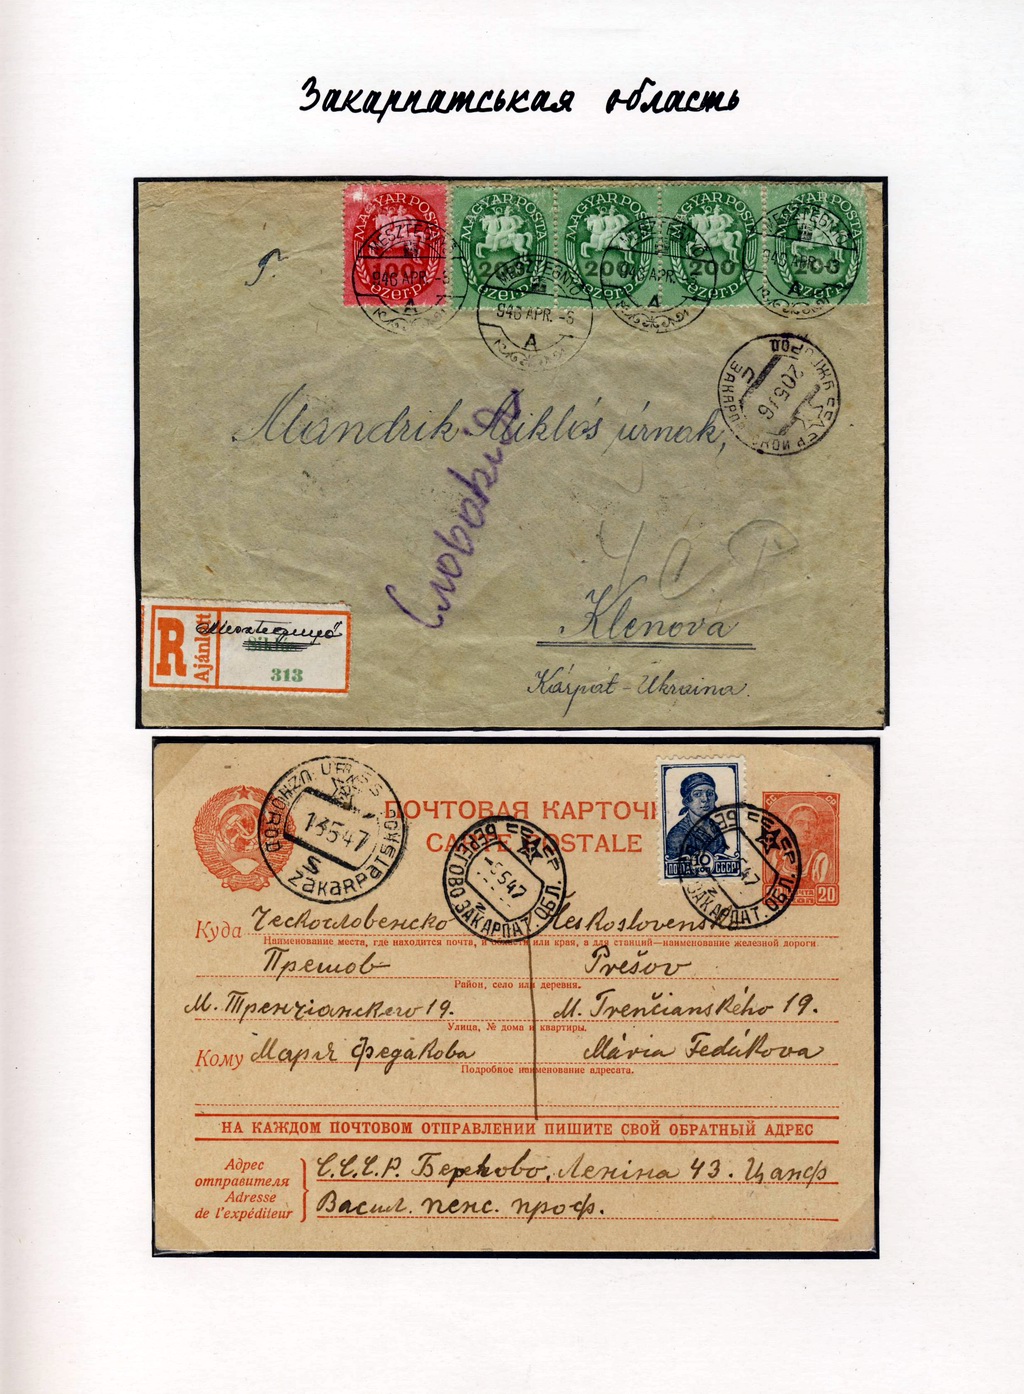 Закарпатськая область
MAGYAR POSTA MAGYAR POSTA MAGYAR POSTA MAGYAR POSTA MAGYAR POSTA
100 200 200 200 200
ezerP ezerP ezerP ezerP ezerP
946 APR. -5
946 APR. -5
946 APR.
946 APR.
A
A
A
A
20 5 46
Mandrik Miklós úrnak,
Словакія
УСР
Klenová
Kárpát-Ukraina.
R Ajánlott
Mesztegnyő
313
UZHOROD ZAKARPATSKOJ
13 5 47
ПОЧТОВАЯ КАРТОЧК
CARTE POSTALE
ПОЧТА СССР
10
20
БЕРЕГОВО ЗАКАРПАТ. ОБЛ. СССР
-5 5 47
ЗАКАРПАТ. ОБЛ. СССР
5 47
Куда Ческословенско Československo
Наименование места, где находится почта, и области или края, а для станций—наименование железной дороги
Прешов Prešov
Район, село или деревня.
М. Тренчіанскего 19. M. Trenčianského 19.
Улица, № дома и квартиры.
Кому Марія Федакова Mária Fedákova
Подробное наименование адресата.
НА КАЖДОМ ПОЧТОВОМ ОТПРАВЛЕНИИ ПИШИТЕ СВОЙ ОБРАТНЫЙ АДРЕС
Адрес отправителя
Adresse de l'expéditeur
С.С.С.Р. Береково, Леніна 43. Цанф
Васил. пенс. проф.